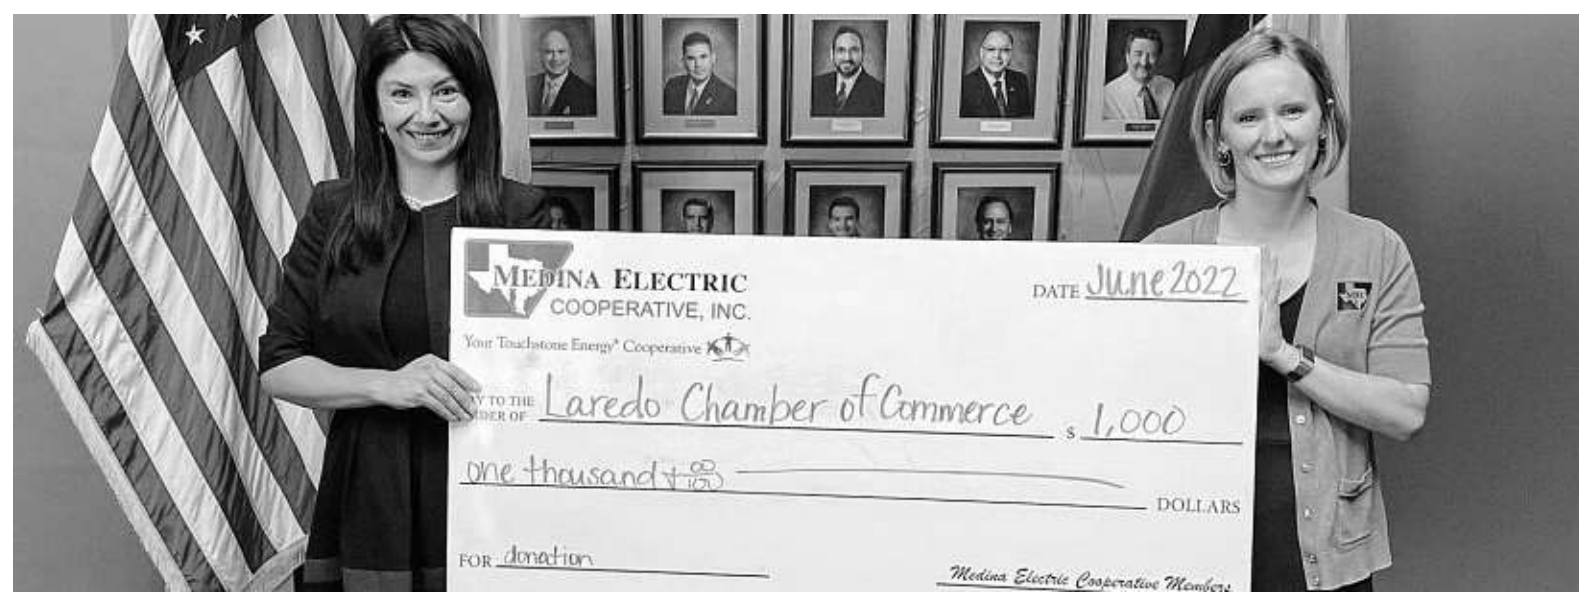 MEDINA ELECTRIC
COOPERATIVE, INC.
Your Touchstone Energy® Cooperative
DATE June 2022
TO THE
OF Laredo Chamber of Commerce $ 1,000
one thousand + 00/100 DOLLARS
FOR donation
Medina Electric Cooperative Members